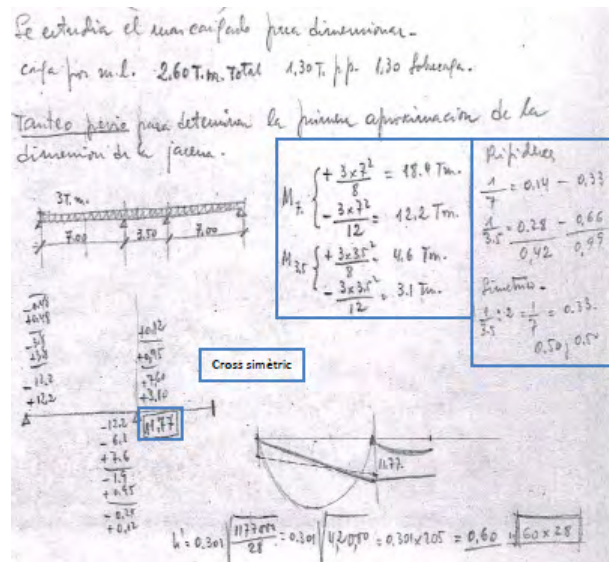 Se estudia el mas cargado para dimensionar-
carga por m.l. 2,60 T.m. Total 1,30 T. p.p. 1,30 Sobrecarga.
Tanteo previo para determinar la primera aproximacion de la
dimension de la jacena.
3T.m.
7.00 3.50 7.00
M7. + 3x7²/8 = 18.4 Tm.
- 3x7²/12 = 12.2 Tm.
M3,5 + 3x3.5²/8 = 4.6 Tm.
- 3x3.5²/12 = 3.1 Tm.
Rigideces
1/7 = 0.14 - 0,33
1/3.5 = 0.28 - 0,66
0,42 0,99
Simetria-
1/3.5 : 2 = 1/7 = 0.33.
0.50; 0.50
Cross simètric
+0,48
- 12,2
+ 12,2
+0,12
+0,95
+7,60
+3,10
11,77
-12.2
- 6.1
+ 7.6
- 1.9
+ 0.95
- 0.24
+ 0,12
11.77.
h' = 0.301 √1177000/28 = 0.301 √42000 = 0.301x205 = 0,60 60x28